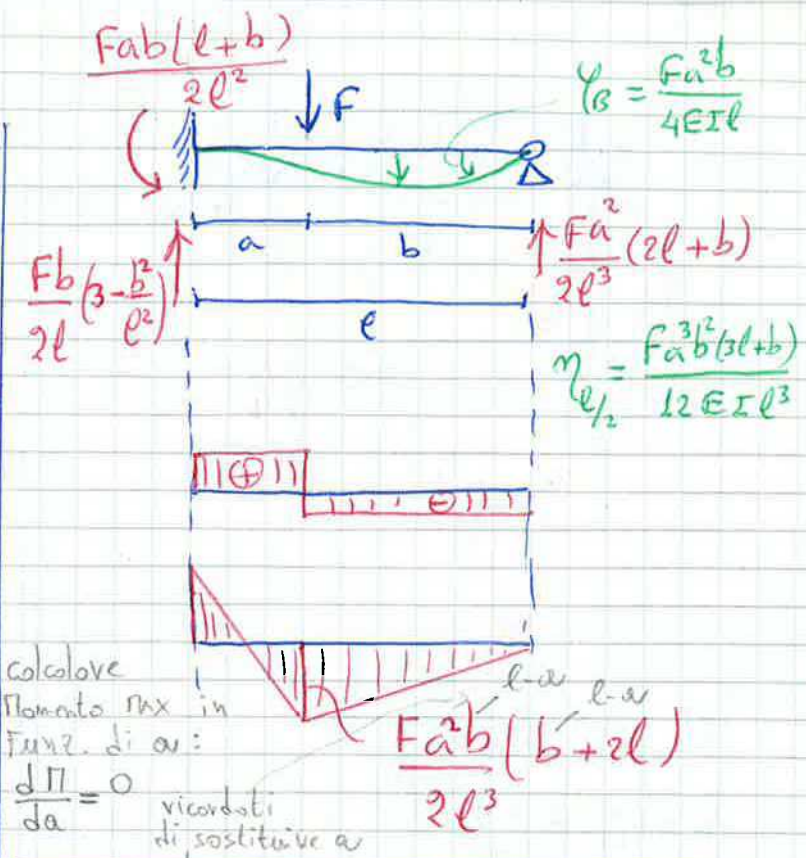 Fab(l+b)
2l²
F
φB = Fa²b / 4EIl
a
b
l
Fb/2l (3 - b²/l²)
Fa²/2l³ (2l+b)
η l/2 = Fa³b²(3l+b) / 12EIl³
⊕
⊖
calcolare
Momento max in
Funz. di a:
dM/da = 0
ricordati
di sostituire a
l-a
l-a
Fa²b/2l³ (b+2l)